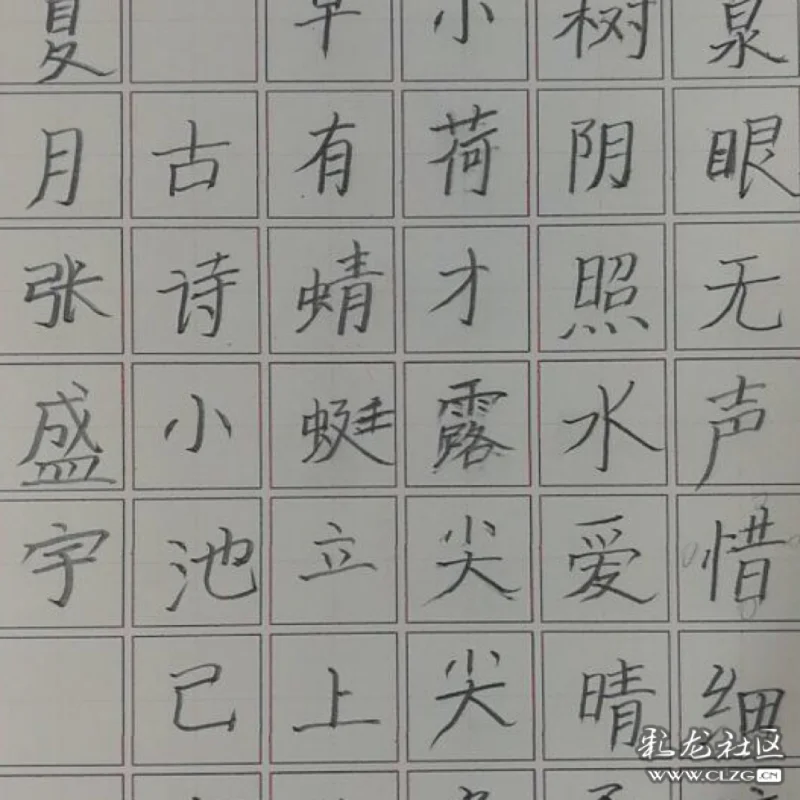 泉眼无声惜细
树阴照水爱晴
小荷才露尖尖
早有蜻蜓立上
古诗小池己
夏月张盛宇
彩龙社区
WWW.CLZG.CN